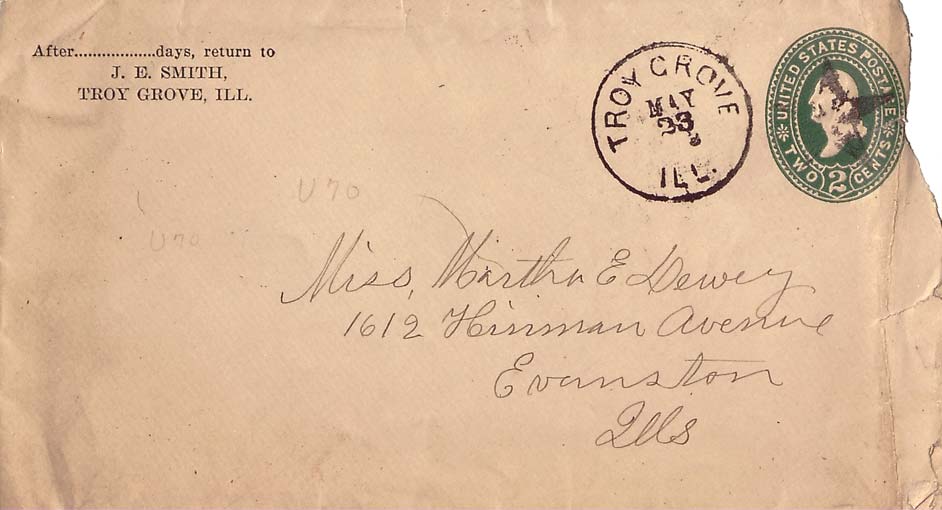 After..................days, return to
J. E. SMITH,
TROY GROVE, ILL.
TROY GROVE
MAY
23
ILL.
UNITED STATES POSTAGE
TWO 2 CENTS
U70
U70
Miss, Martha E Dewey
1612 Hinman Avenue
Evanston
Ills